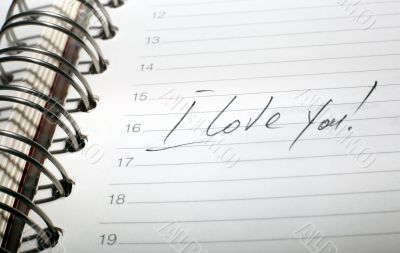 12
13
14
15
16 I love you!
17
18
19